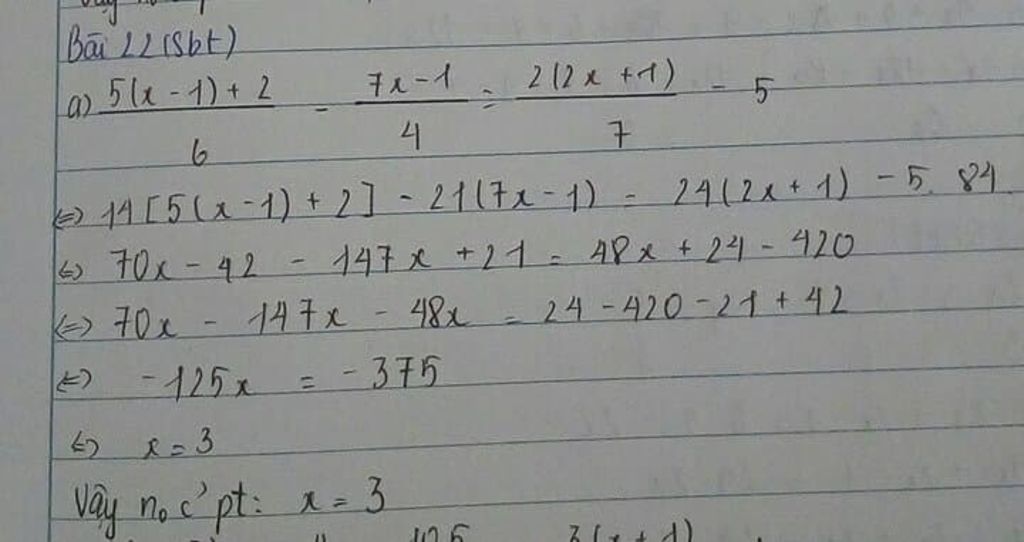 Bài 22 (Sbt)
a) \frac{5(x - 1) + 2}{6} - \frac{7x - 1}{4} = \frac{2(2x + 1)}{7} - 5
<=> 14 [5(x - 1) + 2] - 21(7x - 1) = 24(2x + 1) - 5. 84
<=> 70x - 42 - 147x + 21 = 48x + 24 - 420
<=> 70x - 147x - 48x = 24 - 420 - 21 + 42
<=> -125x = -375
<=> x = 3
Vậy no c' pt: x = 3
3(x + 1)